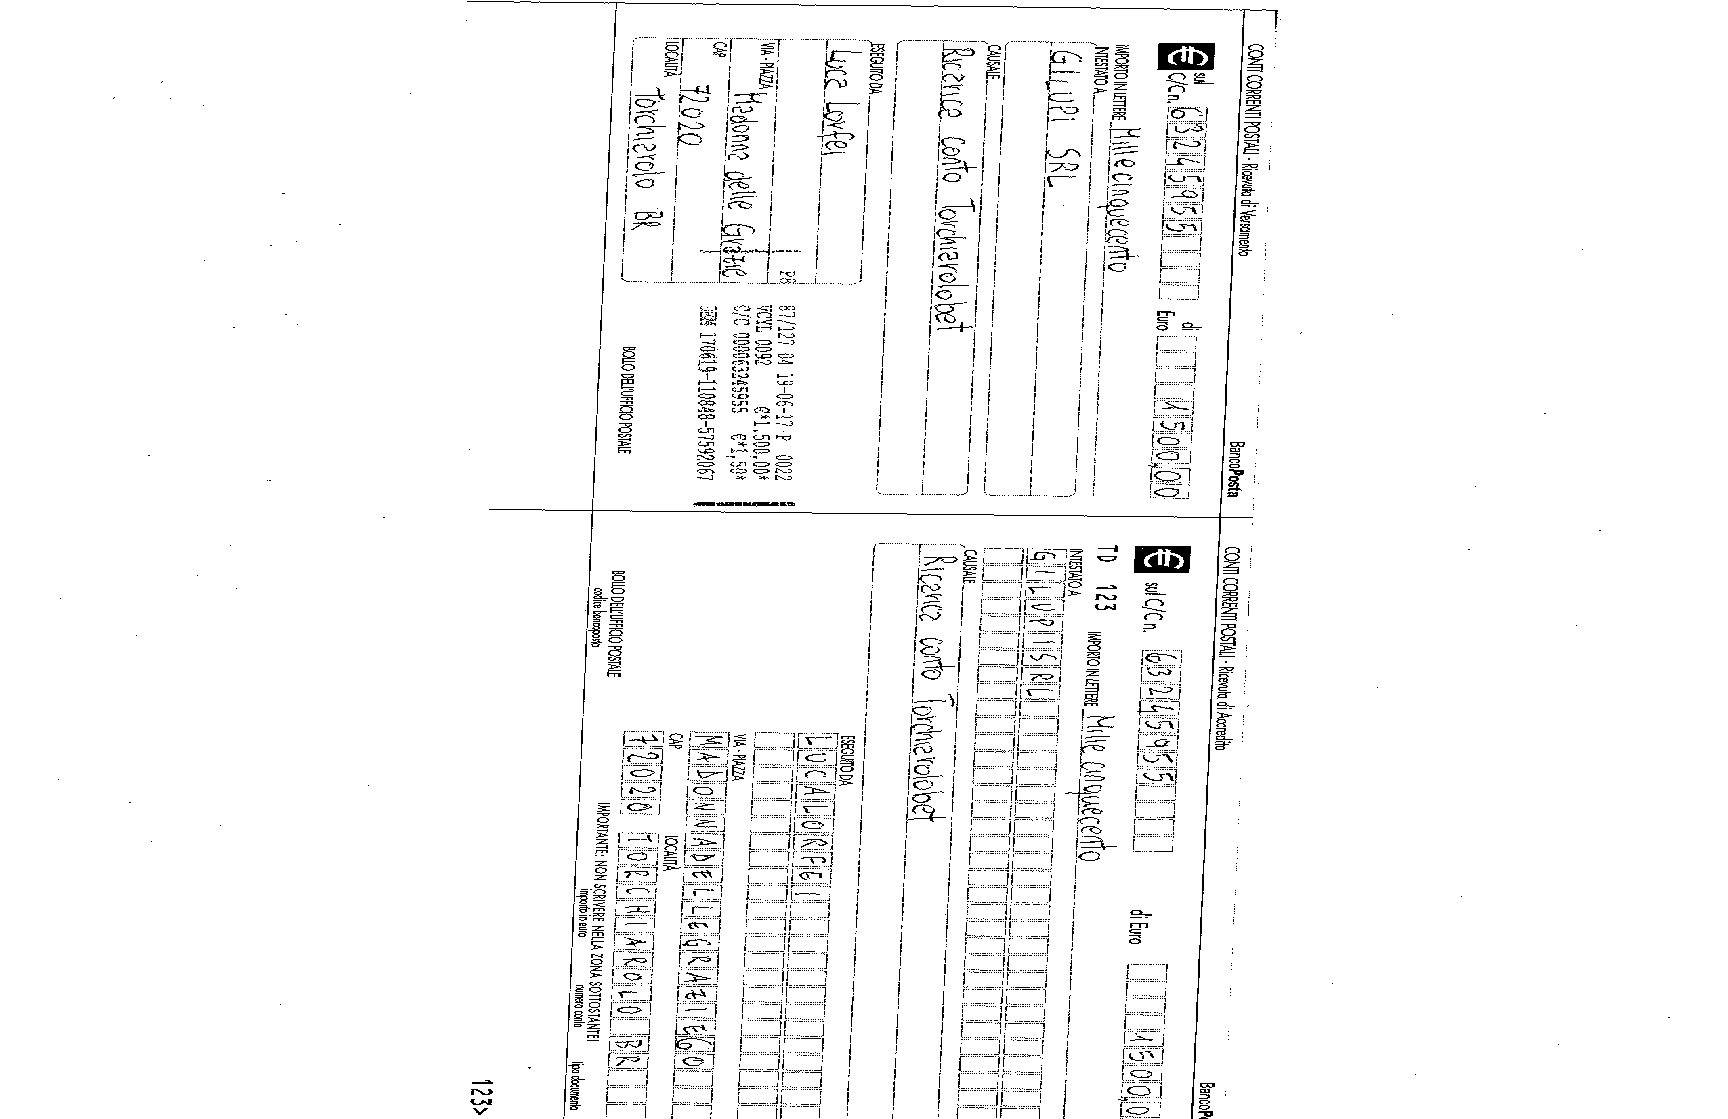 CONTI CORRENTI POSTALI - Ricevuta di Versamento
BancoPosta
€ sul C/C n. 63245955 di Euro 1500,00
IMPORTO IN LETTERE Millecinquecento
INTESTATO A
GILUPI SRL
CAUSALE
Ricarica conto Torchiarolobet
ESEGUITO DA
Luca Lorfei
VIA - PIAZZA
Madonna delle Grazie
CAP
72020
LOCALITÀ
Torchiarolo BR
87/127 04 19-06-17 P 0022
VCYL 0092 €*1.500,00*
C/C 000063245955 €*1,50*
170619-110848-57592067
BOLLO DELL'UFFICIO POSTALE
CONTI CORRENTI POSTALI - Ricevuta di Accredito
BancoP
€ sul C/C n. 63245955 di Euro 1500,0
TD 123 IMPORTO IN LETTERE Mille cinquecento
INTESTATO A
GILUPI SRL
CAUSALE
Ricarica conto Torchiarolobet
ESEGUITO DA
LUCA LORFEI
VIA - PIAZZA
MADONNA DELLE GRAZIE 60
CAP LOCALITÀ
72020 TORCHIAROLO BR
BOLLO DELL'UFFICIO POSTALE
codice bancoposta
IMPORTANTE: NON SCRIVERE NELLA ZONA SOTTOSTANTE!
importo in euro numero conto tipo documento
123>